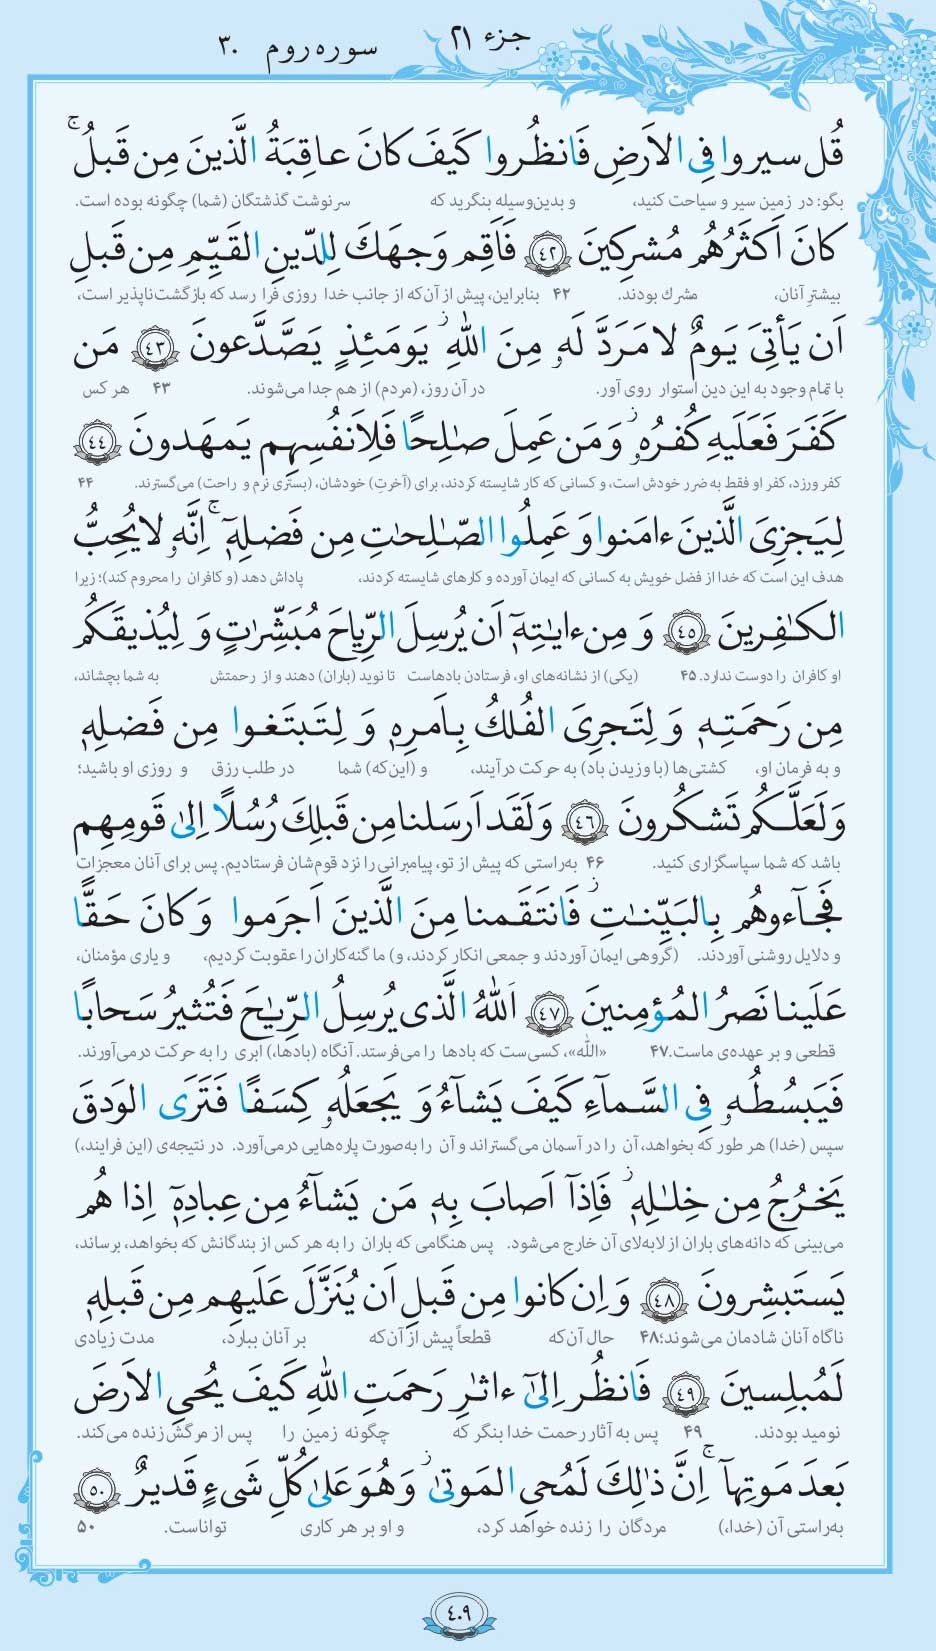 جزء ۲۱
سوره روم ۳۰
قُل سیروا فِی الاَرضِ فَانظُروا کَیفَ کانَ عاقِبَةُ الَّذینَ مِن قَبلُ ۚ
بگو: در زمین سیر و سیاحت کنید، و بدین‌وسیله بنگرید که سرنوشت گذشتگان (شما) چگونه بوده است.
کانَ اَکثَرُهُم مُشرِکینَ ﴿۴۲﴾ فَاَقِم وَجهَكَ لِلدّینِ القَیِّمِ مِن قَبلِ
بیشترِ آنان، مشرك بودند. ۴۲ بنابراین، پیش از آن‌که از جانب خدا روزی فرا رسد که بازگشت‌ناپذیر است،
اَن یَأتِیَ یَومٌ لا مَرَدَّ لَهٗ مِنَ اللهِ ۖ یَومَئِذٍ یَصَّدَّعونَ ﴿۴۳﴾ مَن
با تمام وجود به این دین استوار روی آور. در آن روز، (مردم) از هم جدا می‌شوند. ۴۳ هر کس
کَفَرَ فَعَلَیهِ کُفرُهٗ ۖ وَ مَن عَمِلَ صٰلِحًا فَلِاَنفُسِهِم یَمهَدونَ ﴿۴۴﴾
کفر ورزد، کفر او فقط به ضرر خودش است، و کسانی که کار شایسته کردند، برای (آخرتِ) خودشان، (بستری نرم و راحت) می‌گسترند. ۴۴
لِیَجزِیَ الَّذینَ ءامَنوا وَ عَمِلُوا الصّٰلِحٰتِ مِن فَضلِهٖٓ ۚ اِنَّهٗ لا یُحِبُّ
هدف این است که خدا از فضل خویش به کسانی که ایمان آورده و کارهای شایسته کردند، پاداش دهد (و کافران را محروم کند)؛ زیرا
الکٰفِرینَ ﴿۴۵﴾ وَ مِن ءایٰتِهٖٓ اَن یُرسِلَ الرِّیاحَ مُبَشِّرٰتٍ وَ لِیُذیقَکُم
او کافران را دوست ندارد. ۴۵ (یکی) از نشانه‌های او، فرستادن بادهاست تا نوید (باران) دهند و از رحمتش به شما بچشاند،
مِن رَحمَتِهٖ وَ لِتَجرِیَ الفُلكُ بِاَمرِهٖ وَ لِتَبتَغوا مِن فَضلِهٖ
و به فرمان او، کشتی‌ها (با وزیدن باد) به حرکت درآیند، و (این‌که) شما در طلب رزق و روزی او باشید؛
وَ لَعَلَّکُم تَشکُرونَ ﴿۴۶﴾ وَ لَقَد اَرسَلنا مِن قَبلِكَ رُسُلًا اِلیٰ قَومِهِم
باشد که شما سپاسگزاری کنید. ۴۶ به‌راستی که پیش از تو، پیامبرانی را نزد قوم‌شان فرستادیم. پس برای آنان معجزات
فَجآءوهُم بِالبَیِّنٰتِ ۖ فَانتَقَمنا مِنَ الَّذینَ اَجرَموا وَ کانَ حَقًّا
و دلایل روشنی آوردند. (گروهی ایمان آوردند و جمعی انکار کردند، و) ما گنه‌کاران را عقوبت کردیم، و یاری مؤمنان،
عَلَینا نَصرُ المُؤمِنینَ ﴿۴۷﴾ اَللهُ الَّذی یُرسِلُ الرِّیٰحَ فَتُثیرُ سَحابًا
قطعی و بر عهده‌ی ماست. ۴۷ «الله»، کسی‌ست که بادها را می‌فرستد. آنگاه (بادها،) ابری را به حرکت درمی‌آورند.
فَیَبسُطُهٗ فِی السَّمآءِ کَیفَ یَشآءُ وَ یَجعَلُهٗ کِسَفًا فَتَرَی الوَدقَ
سپس (خدا) هر طور که بخواهد، آن را در آسمان می‌گستراند و آن را به‌صورت پاره‌هایی درمی‌آورد. در نتیجه‌ی (این فرایند،)
یَخرُجُ مِن خِلٰلِهٖ ۖ فَاِذآ اَصابَ بِهٖ مَن یَشآءُ مِن عِبادِهٖٓ اِذا هُم
می‌بینی که دانه‌های باران از لابه‌لای آن خارج می‌شود. پس هنگامی که باران را به هر کس از بندگانش که بخواهد، برساند،
یَستَبشِرونَ ﴿۴۸﴾ وَ اِن کانوا مِن قَبلِ اَن یُنَزَّلَ عَلَیهِم مِن قَبلِهٖ
ناگاه آنان شادمان می‌شوند؛ ۴۸ حال آن‌که قطعاً پیش از آن‌که بر آنان ببارد، مدت زیادی
لَمُبلِسینَ ﴿۴۹﴾ فَانظُر اِلیٰٓ ءاثٰرِ رَحمَتِ اللهِ کَیفَ یُحیِ الاَرضَ
نومید بودند. ۴۹ پس به آثار رحمت خدا بنگر که چگونه زمین را پس از مرگش زنده می‌کند.
بَعدَ مَوتِهآ ۚ اِنَّ ذٰلِكَ لَمُحیِ المَوتیٰ ۖ وَ هُوَ عَلیٰ کُلِّ شَیءٍ قَدیرٌ ﴿۵۰﴾
به‌راستی آن (خدا،) مردگان را زنده خواهد کرد، و او بر هر کاری تواناست. ۵۰
۴۰۹